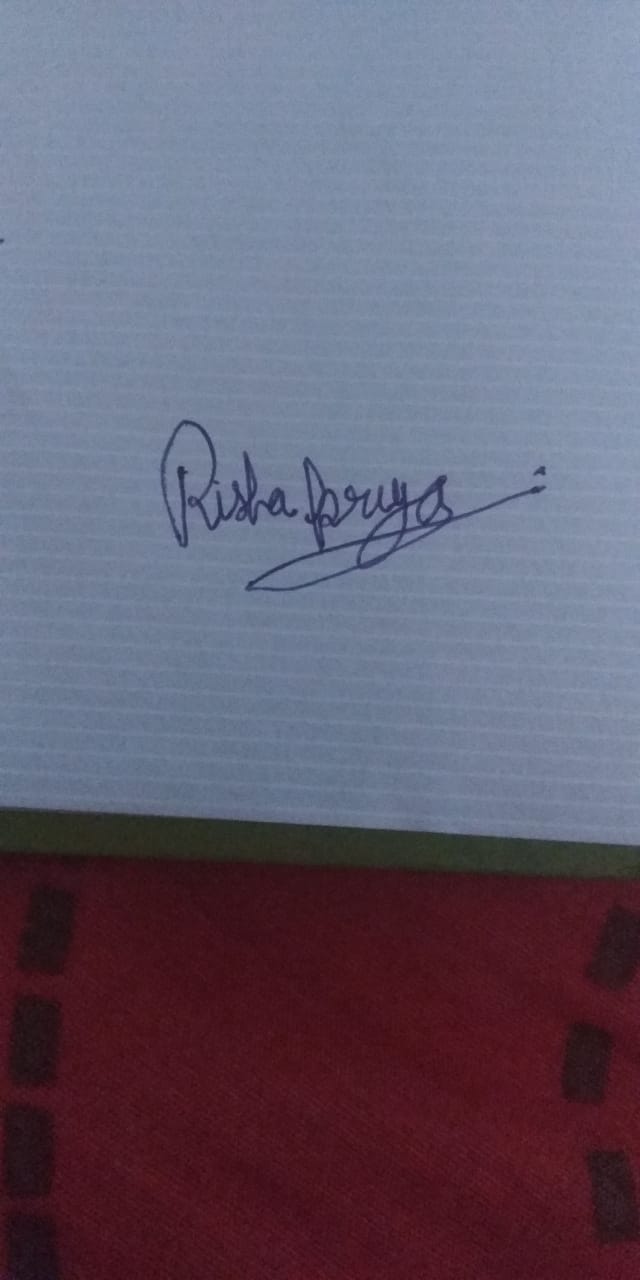 Risha priya